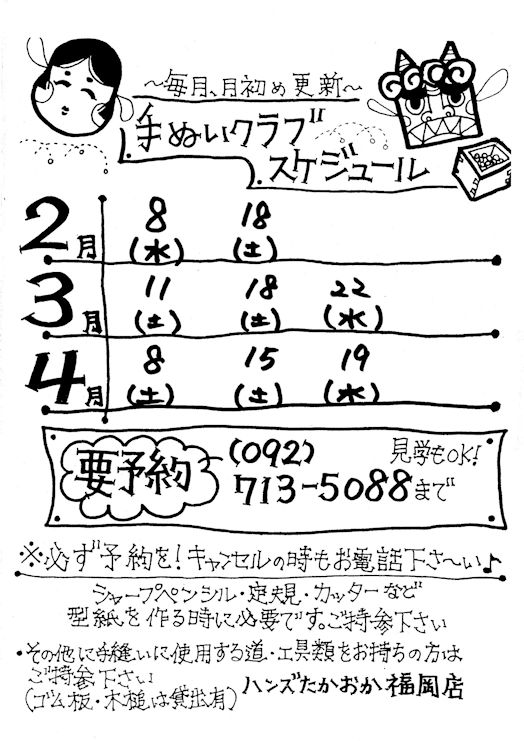 〜毎月、月初め更新〜
手ぬいクラブ
スケジュール
2月 8(水) 18(土)
3月 11(土) 18(土) 22(水)
4月 8(土) 15(土) 19(水)
要予約 (092) 見学もOK!
713-5088まで
※必ず予約を!キャンセルの時もお電話下さ〜い♪
シャープペンシル・定規・カッターなど
型紙を作る時に必要です。ご持参下さい
・その他に手縫いに使用する道・工具類をお持ちの方は
ご持参下さい
(ゴム板・木槌は貸出有) ハンズたかおか福岡店